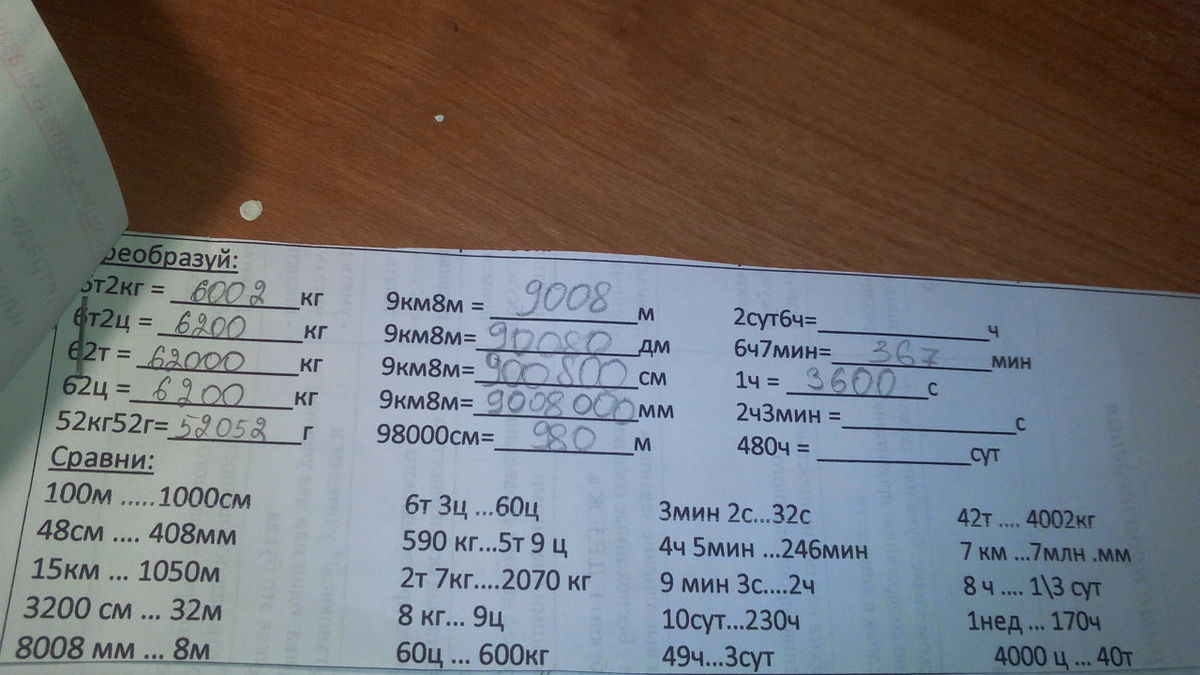 реобразуй:
6т2кг = 6002 кг
6т2ц = 6200 кг
62т = 62000 кг
62ц = 6200 кг
52кг52г= 52052 г
9км8м = 9008 м
9км8м= 90080 дм
9км8м= 900800 см
9км8м= 9008000 мм
98000см= 980 м
2сут6ч= ч
6ч7мин= 367 мин
1ч = 3600 с
2ч3мин = с
480ч = сут
Сравни:
100м .....1000см
48см .... 408мм
15км ... 1050м
3200 см ... 32м
8008 мм ... 8м
6т 3ц ...60ц
590 кг...5т 9 ц
2т 7кг....2070 кг
8 кг... 9ц
60ц ... 600кг
3мин 2с...32с
4ч 5мин ...246мин
9 мин 3с....2ч
10сут...230ч
49ч...3сут
42т .... 4002кг
7 км ...7млн .мм
8 ч .... 1\3 сут
1нед ... 170ч
4000 ц ... 40т